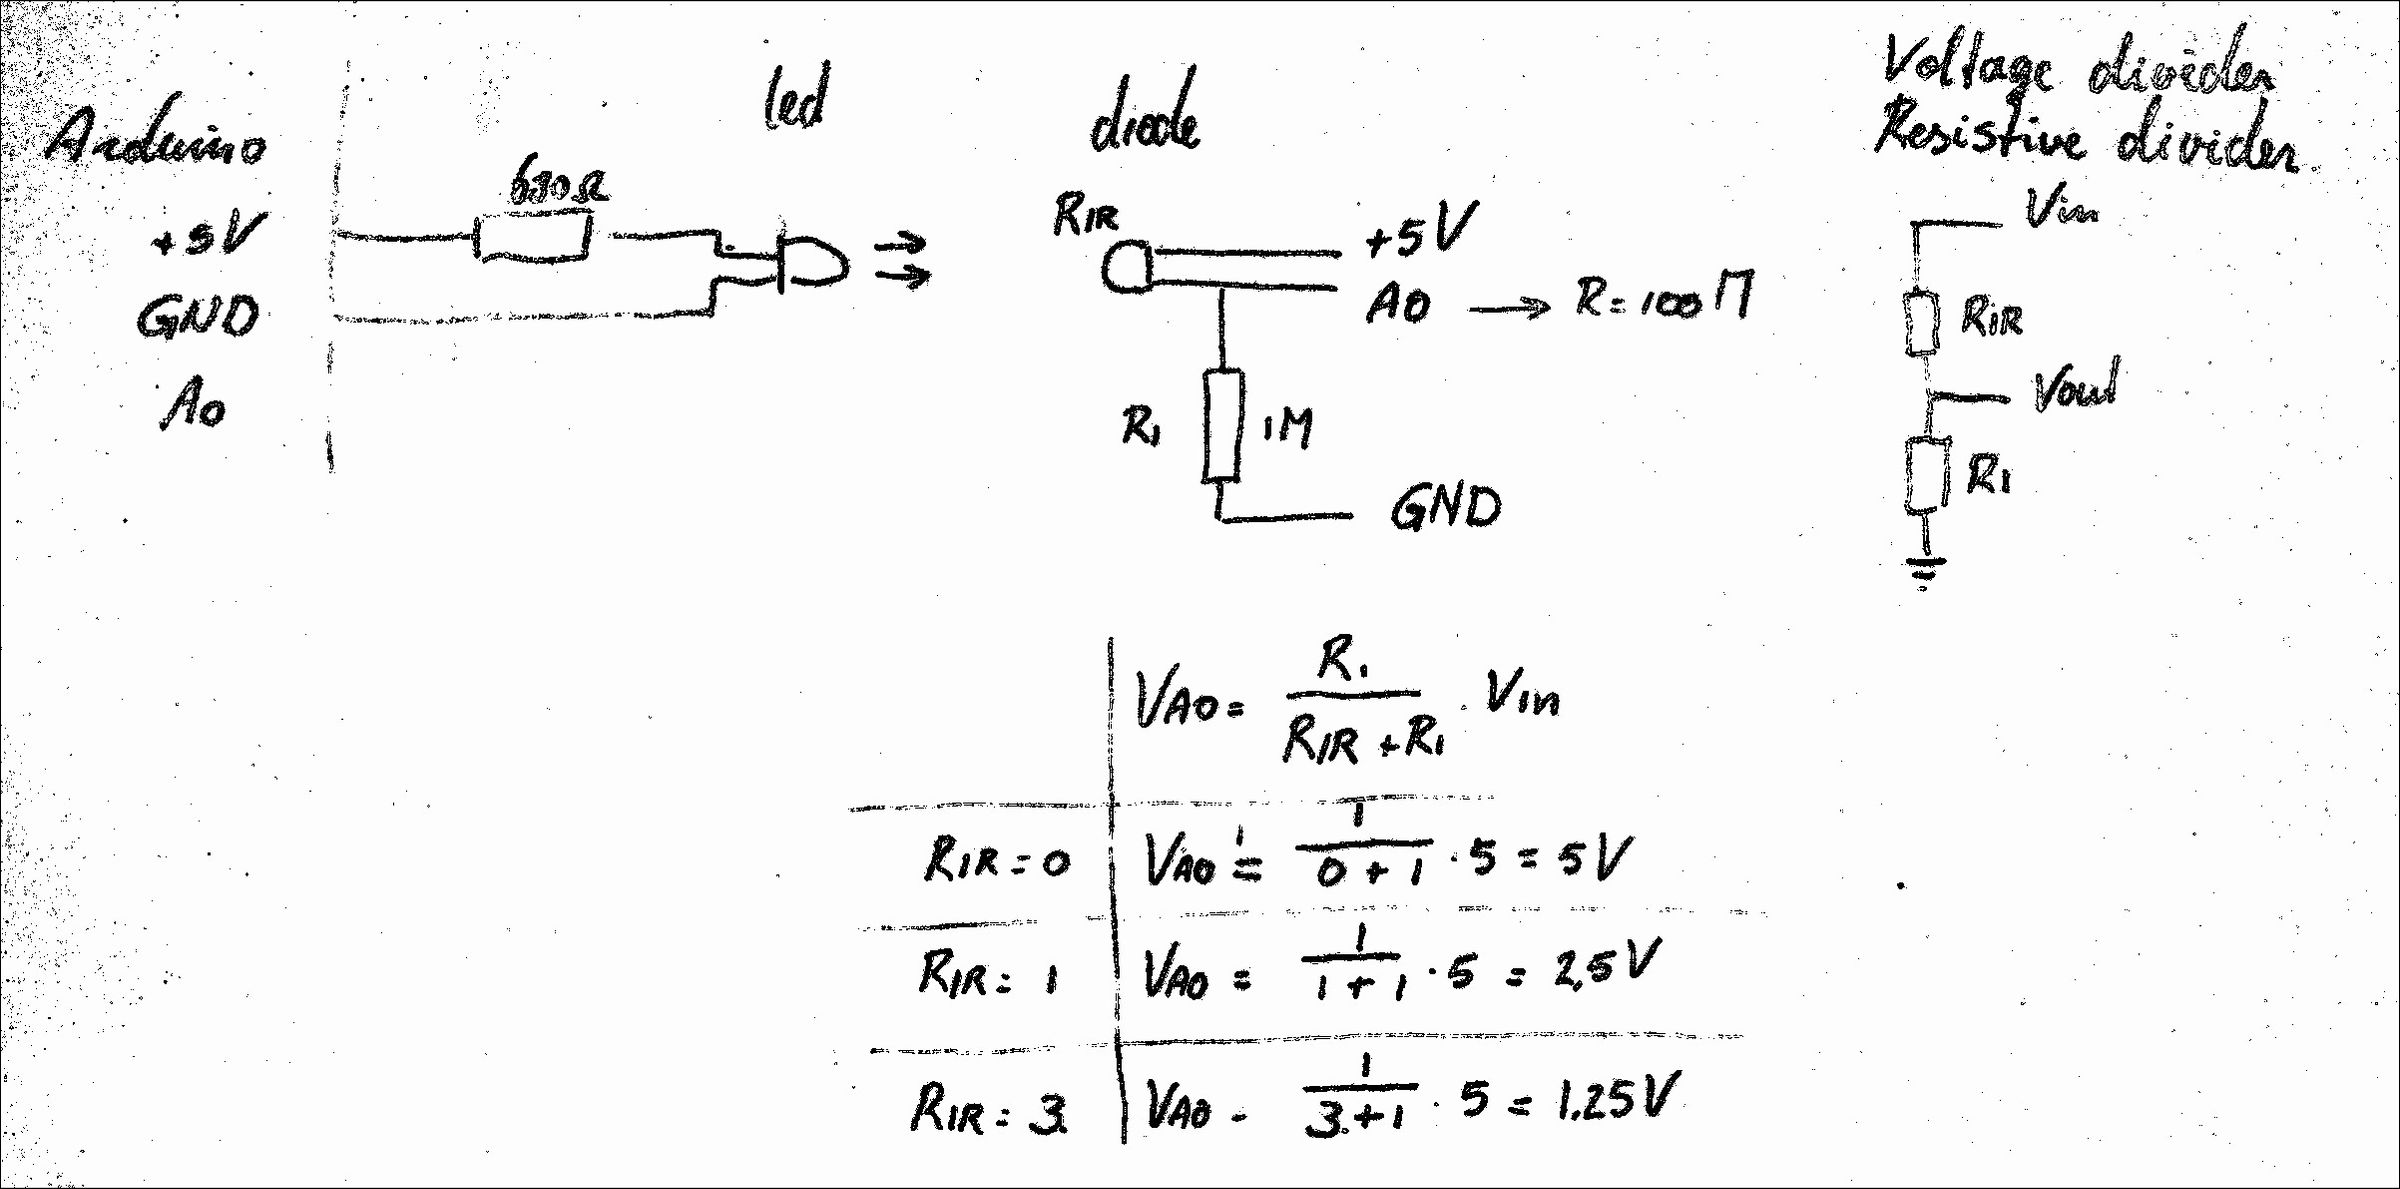 Arduino
+5V
GND
A0
led
diode
RIR
+5V
A0 → R = 100 M
R1 1M
GND
Voltage divider
Resistive divider
Vin
RIR
Vout
R1
VA0 = R1 / (RIR + R1) · Vin
RIR = 0 VA0 = 1 / (0 + 1) · 5 = 5V
RIR = 1 VA0 = 1 / (1 + 1) · 5 = 2,5V
RIR = 3 VA0 - 1 / (3 + 1) · 5 = 1.25V